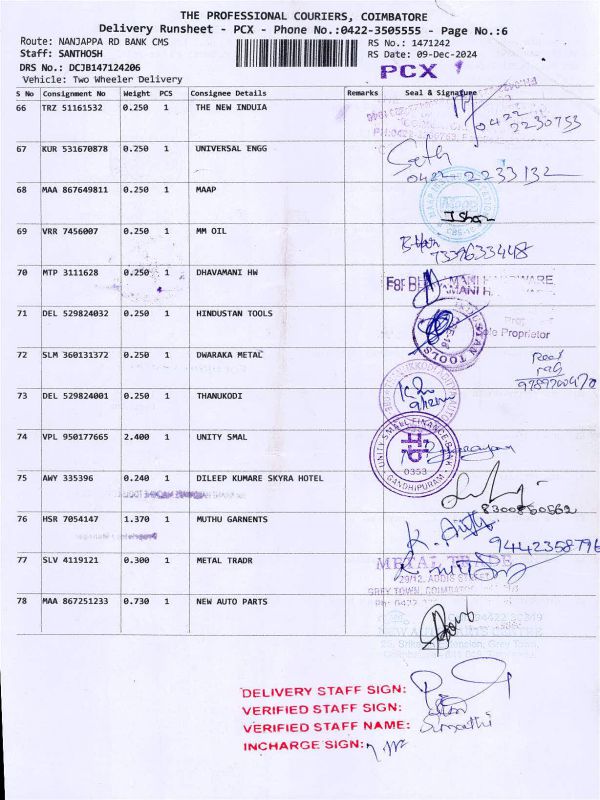 THE PROFESSIONAL COURIERS, COIMBATORE
Delivery Runsheet - PCX - Phone No.:0422-3505555 - Page No.:6
Route: NANJAPPA RD BANK CMS
RS No.: 1471242
Staff: SANTHOSH
RS Date: 09-Dec-2024
DRS No.: DCJB147124206
PCX
Vehicle: Two Wheeler Delivery
S No Consignment No Weight PCS Consignee Details Remarks Seal & Signature
66 TRZ 51161532 0.250 1 THE NEW INDUIA
0422
2230753
67 KUR 531670878 0.250 1 UNIVERSAL ENGG
Seth
0422-2233132
68 MAA 867649811 0.250 1 MAAP
69 VRR 7456007 0.250 1 MM OIL
7339633448
70 MTP 3111628 0.250 1 DHAVAMANI HW
71 DEL 529824032 0.250 1 HINDUSTAN TOOLS
HINDUSTAN TOOLS
Sole Proprietor
72 SLM 360131372 0.250 1 DWARAKA METAL
73 DEL 529824001 0.250 1 THANUKODI
74 VPL 950177665 2.400 1 UNITY SMAL
UNITY SMALL FINANCE BANK
0353
GANDHIPURAM
75 AWY 335396 0.240 1 DILEEP KUMARE SKYRA HOTEL
8300850562
76 HSR 7054147 1.370 1 MUTHU GARNENTS
9442358796
77 SLV 4119121 0.300 1 METAL TRADR
METAL TRADE
29/12, ADDIS STREET
GREY TOWN, COIMBATORE
78 MAA 867251233 0.730 1 NEW AUTO PARTS
DELIVERY STAFF SIGN:
VERIFIED STAFF SIGN:
VERIFIED STAFF NAME: Sumathi
INCHARGE SIGN: